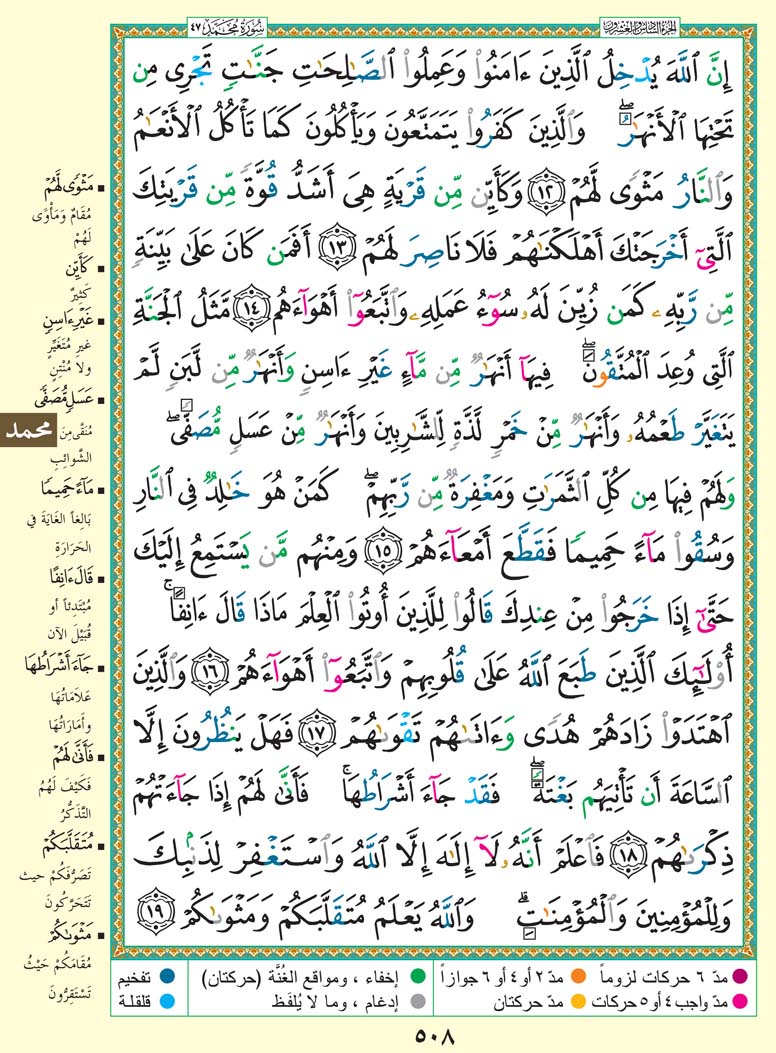 الجزء السادس والعشرون
سورة محمد ٤٧
إِنَّ ٱللَّهَ يُدۡخِلُ ٱلَّذِينَ ءَامَنُواْ وَعَمِلُواْ ٱلصَّٰلِحَٰتِ جَنَّٰتٖ تَجۡرِي مِن
تَحۡتِهَا ٱلۡأَنۡهَٰرُۖ وَٱلَّذِينَ كَفَرُواْ يَتَمَتَّعُونَ وَيَأۡكُلُونَ كَمَا تَأۡكُلُ ٱلۡأَنۡعَٰمُ
وَٱلنَّارُ مَثۡوٗى لَّهُمۡ ١٢ وَكَأَيِّن مِّن قَرۡيَةٍ هِيَ أَشَدُّ قُوَّةٗ مِّن قَرۡيَتِكَ
ٱلَّتِيٓ أَخۡرَجَتۡكَ أَهۡلَكۡنَٰهُمۡ فَلَا نَاصِرَ لَهُمۡ ١٣ أَفَمَن كَانَ عَلَىٰ بَيِّنَةٖ
مِّن رَّبِّهِۦ كَمَن زُيِّنَ لَهُۥ سُوٓءُ عَمَلِهِۦ وَٱتَّبَعُوٓاْ أَهۡوَآءَهُم ١٤ مَّثَلُ ٱلۡجَنَّةِ
ٱلَّتِي وُعِدَ ٱلۡمُتَّقُونَۖ فِيهَآ أَنۡهَٰرٞ مِّن مَّآءٍ غَيۡرِ ءَاسِنٖ وَأَنۡهَٰرٞ مِّن لَّبَنٖ لَّمۡ
يَتَغَيَّرۡ طَعۡمُهُۥ وَأَنۡهَٰرٞ مِّنۡ خَمۡرٖ لَّذَّةٖ لِّلشَّٰرِبِينَ وَأَنۡهَٰرٞ مِّنۡ عَسَلٖ مُّصَفّٗىۖ
وَلَهُمۡ فِيهَا مِن كُلِّ ٱلثَّمَرَٰتِ وَمَغۡفِرَةٞ مِّن رَّبِّهِمۡۖ كَمَنۡ هُوَ خَٰلِدٞ فِي ٱلنَّارِ
وَسُقُواْ مَآءً حَمِيمٗا فَقَطَّعَ أَمۡعَآءَهُمۡ ١٥ وَمِنۡهُم مَّن يَسۡتَمِعُ إِلَيۡكَ
حَتَّىٰٓ إِذَا خَرَجُواْ مِنۡ عِندِكَ قَالُواْ لِلَّذِينَ أُوتُواْ ٱلۡعِلۡمَ مَاذَا قَالَ ءَانِفًاۚ
أُوْلَٰٓئِكَ ٱلَّذِينَ طَبَعَ ٱللَّهُ عَلَىٰ قُلُوبِهِمۡ وَٱتَّبَعُوٓاْ أَهۡوَآءَهُمۡ ١٦ وَٱلَّذِينَ
ٱهۡتَدَوۡاْ زَادَهُمۡ هُدٗى وَءَاتَىٰهُمۡ تَقۡوَىٰهُمۡ ١٧ فَهَلۡ يَنظُرُونَ إِلَّا
ٱلسَّاعَةَ أَن تَأۡتِيَهُم بَغۡتَةٗۖ فَقَدۡ جَآءَ أَشۡرَاطُهَاۚ فَأَنَّىٰ لَهُمۡ إِذَا جَآءَتۡهُمۡ
ذِكۡرَىٰهُمۡ ١٨ فَٱعۡلَمۡ أَنَّهُۥ لَآ إِلَٰهَ إِلَّا ٱللَّهُ وَٱسۡتَغۡفِرۡ لِذَنۢبِكَ
وَلِلۡمُؤۡمِنِينَ وَٱلۡمُؤۡمِنَٰتِۗ وَٱللَّهُ يَعۡلَمُ مُتَقَلَّبَكُمۡ وَمَثۡوَىٰكُمۡ ١٩
■ مَثۡوٗى لَّهُمۡ
مُقَامٌ وَمَأْوًى
لَهُمْ
■ كَأَيِّن
كَثِيرٌ
■ غَيۡرِ ءَاسِنٖ
غير مُتَغَيِّرٍ
ولا مُنْتِنٍ
■ عَسَلٖ مُّصَفّٗى
مُنَقًّى مِنَ
الشَّوائِبِ
محمد
■ مَآءً حَمِيمٗا
بَالِغاً الغَايَةَ في
الحَرَارَةِ
■ قَالَ ءَانِفًا
مُبْتَدِئاً أو
قُبَيْلَ الآن
■ جَآءَ أَشۡرَاطُهَا
عَلَامَاتُهَا
وأَمَارَاتُهَا
■ فَأَنَّىٰ لَهُمۡ
فَكَيْفَ لَهُمُ
التَّذَكُّرُ
■ مُتَقَلَّبَكُمۡ
تَصَرُّفَكُمْ حيث
تَتَحَرَّكُونَ
■ مَثۡوَىٰكُمۡ
مُقَامَكُمْ حَيْثُ
تَسْتَقِرُّونَ
مدّ ٦ حركات لزوماً
مدّ واجب ٤ أو ٥ حركات
مدّ ٢ أو ٤ أو ٦ جوازاً
مدّ حركتان
إخفاء ، ومواقع الغُنَّة (حركتان)
إدغام ، وما لا يُلفَظ
تفخيم
قلقلة
٥٠٨